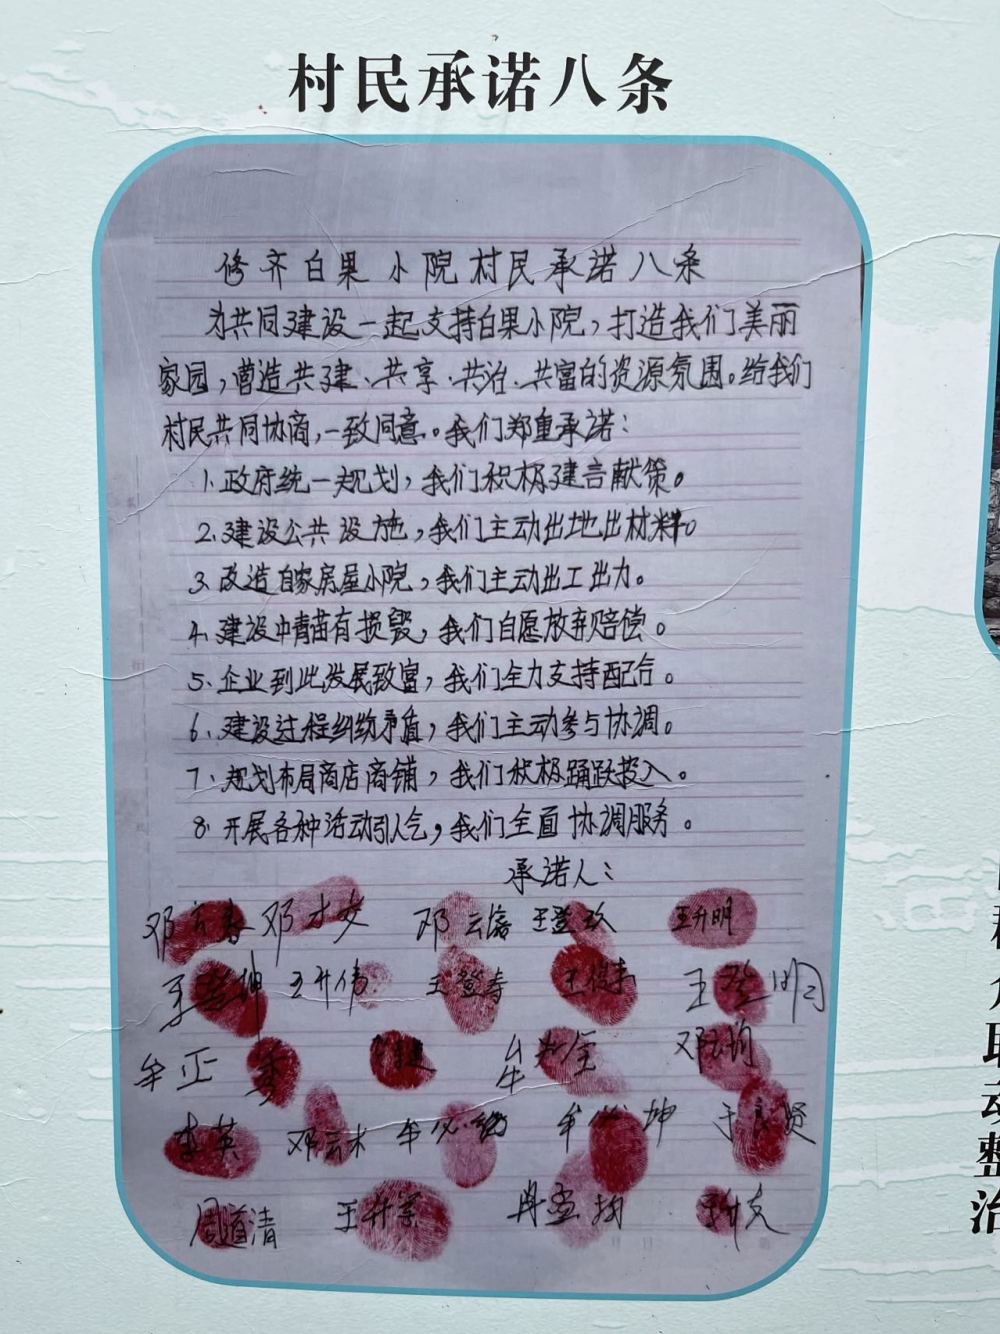 村民承诺八条
修齐白果小院村民承诺八条
为共同建设一起支持白果小院，打造我们美丽
家园，营造共建、共享、共治、共富的资源氛围。给我们
村民共同协商，一致同意。我们郑重承诺：
1、政府统一规划，我们积极建言献策。
2、建设公共设施，我们主动出地出材料。
3、改造自家房屋小院，我们主动出工出力。
4、建设中青苗有损毁，我们自愿放弃赔偿。
5、企业到此发展致富，我们全力支持配合。
6、建设过程纠纷矛盾，我们主动参与协调。
7、规划布局商店商铺，我们积极踊跃投入。
8、开展各种活动引人气，我们全面协调服务。
承诺人：
邓云春 邓才女 邓云 王登 王升明
王登坤 王升伟 王登寿 王俊 王登明
牟正 牟 邓云
李英 邓云术 牟必 牟必坤 王良贤
周道清 王升 冉 王升文
动
整
治